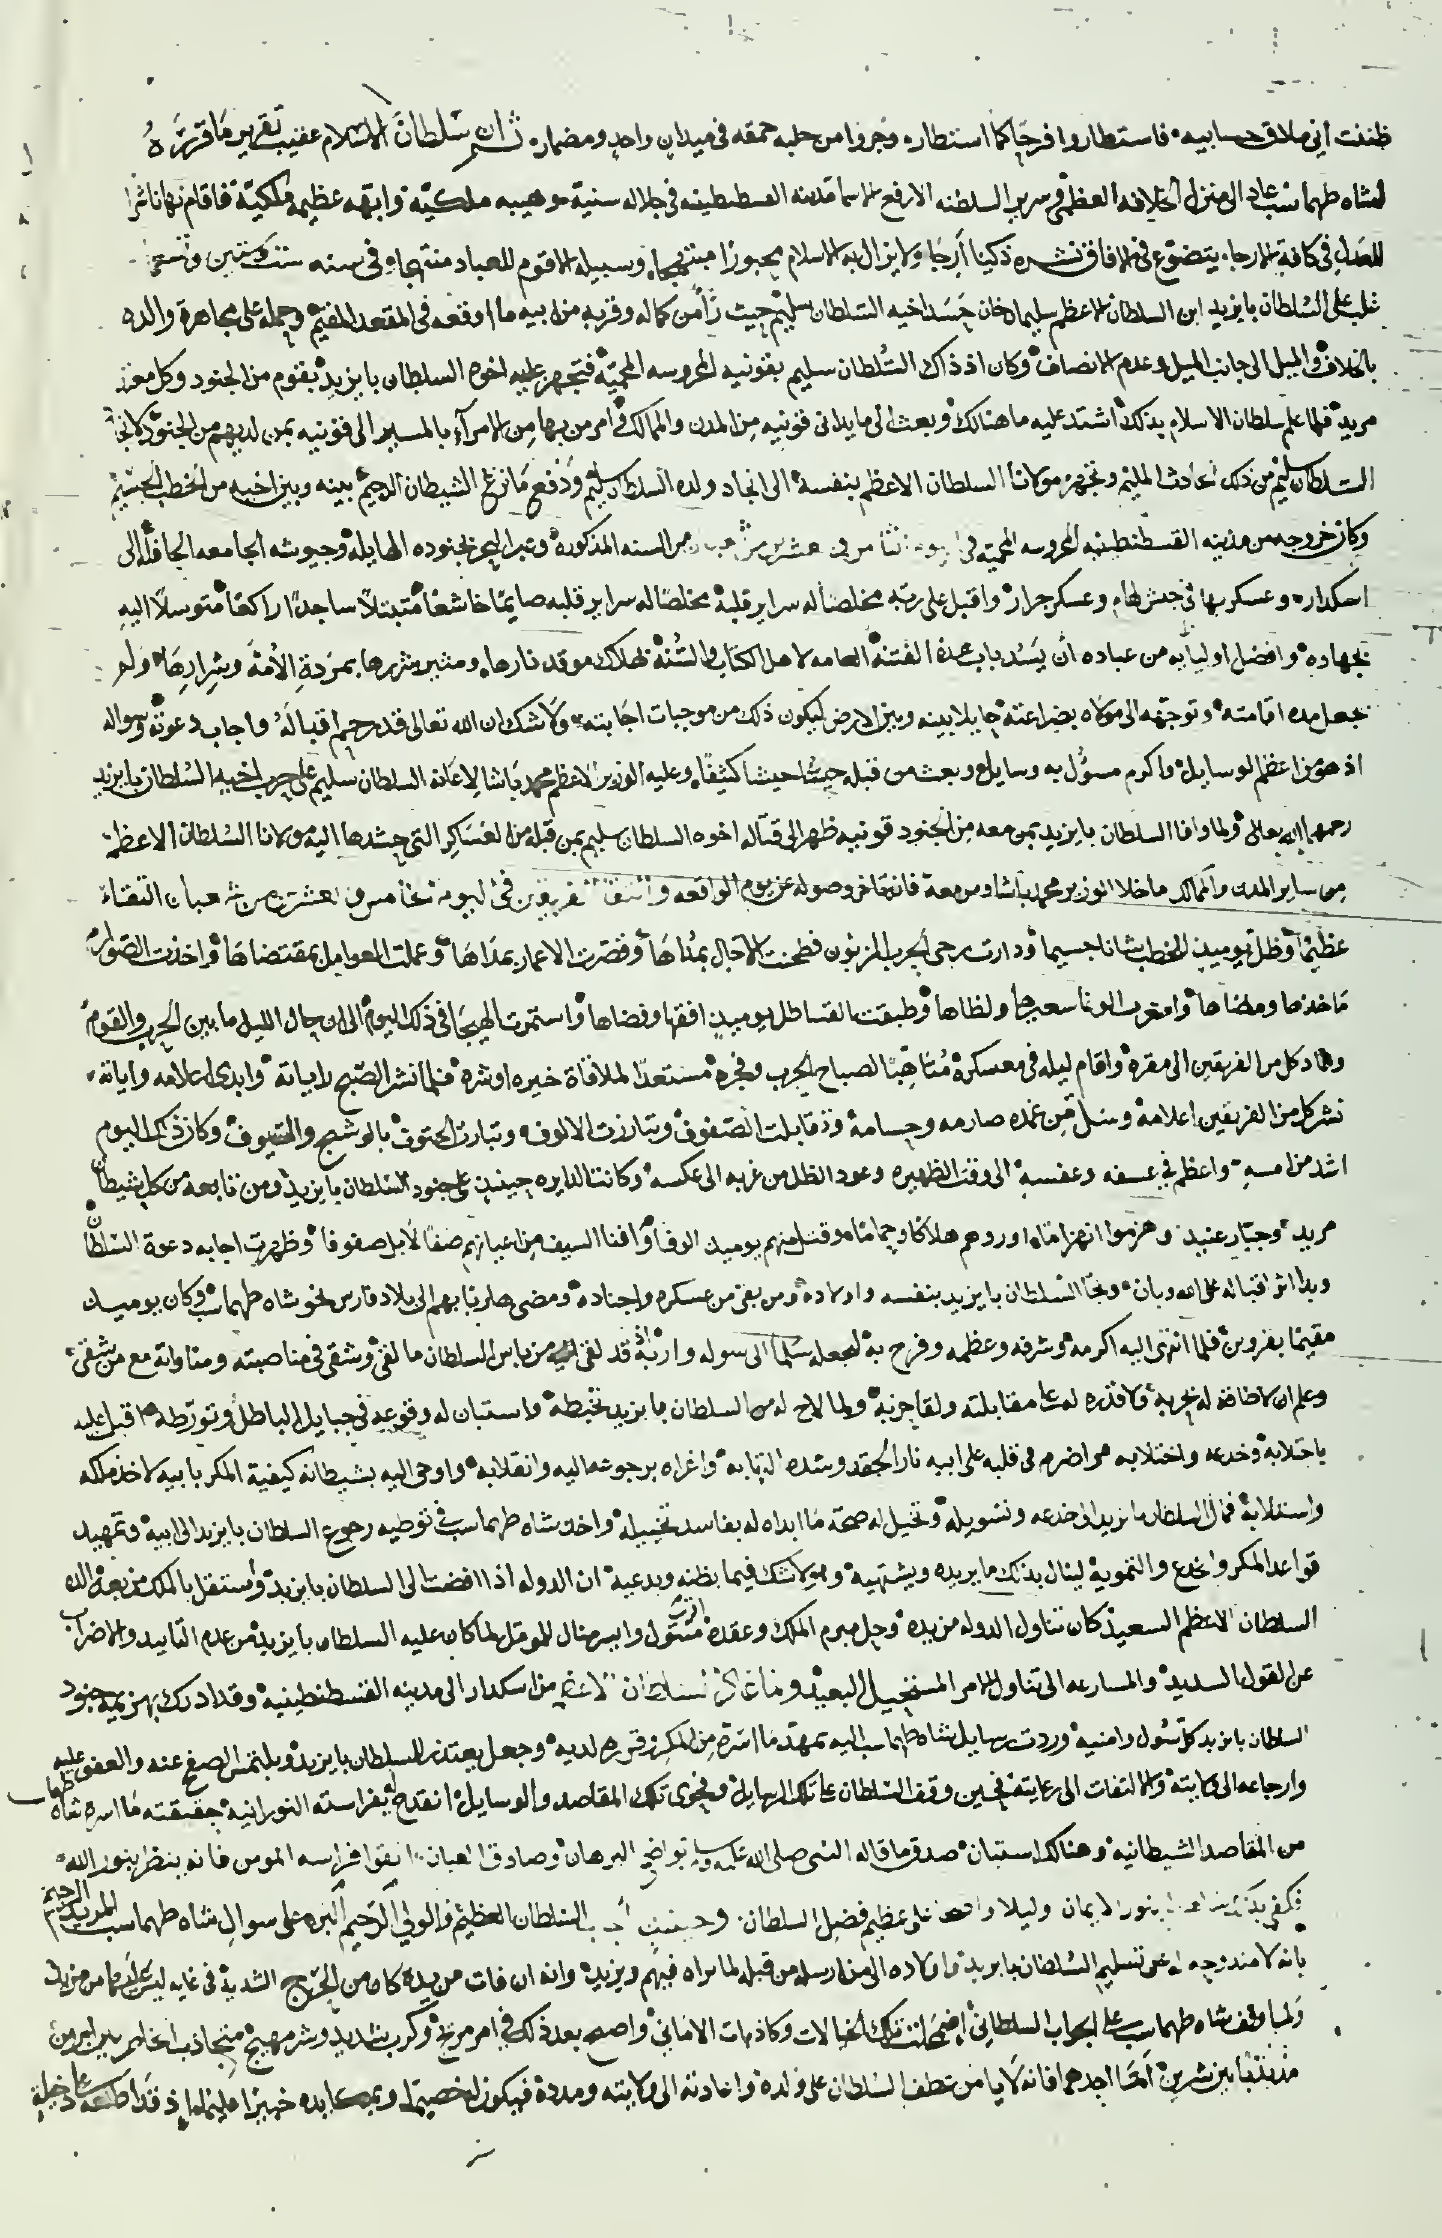 ظننت اني ملاق حسابيه فاستطاروا فرحا كما استطاره وجروا من حلبه حمقه في ميدان واحد ومضماره ثم ان سلطان الاسلام عقيب تقرير ما قرره
لشاه طهماسب عاد الى منزل الخلافه العظمى وسرير السلطنه الارفع الاسما مدينه القسطنطينيه في جلاله سنية وهيبه ملكية وابهه عظيمه فلكية فاقام بها ناشرا
للعدل في كافة الارجاء يتضوع في الافاق نشره ذكيا أرجا ولا يزال به الاسلام محبورا مبتهجا وسبيله الاقوم للعباد منتهجا وفي سنه ست وستين وتسعمايه
غلب على السلطان بايزيد ابن السلطان الاعظم سليمان خان حسد اخيه السلطان سليم حيث رأى من كماله وقربه من ابيه ما اوقعه في المقعد المقيم وحمله على مجاهرة والده
بالخلاف والميل الى جانب الميل وعدم الانصاف وكان اذ ذاك السلطان سليم بقونيه المحروسه المحمية فتجهز عليه اخوه السلطان بايزيد بقوم من الجنود وكل معتز
مريد فلما علم سلطان الاسلام بذلك اشتد عليه ما هنالك وبعث الى ما يداني قونيه من المدن والممالك في امر من بها من الامرآء بالمسير الى قونيه بمن لديهم من الجنود لانجاد
السلطان سليم من ذلك الحادث المليم وتجهز مولانا السلطان الاعظم بنفسه الى انجاد ولده السلطان سليم ودفع ما نزغ الشيطان الرجيم بينه وبين اخيه من الخطب الجسيم
وكان خروجه من مدينه القسطنطينيه المحروسه المحمية في اليوم الثامن عشرين من شعبان من السنه المذكورة وعبر البحر بجنوده الهايلة وجيوشه الجامعه الحافلة الى
اسكداره وعسكر بها في جيش لهام وعسكر جرار واقبل على ربه مخلصا له سراير قلبه صايما خاشعا متبتلا ساجدا راكعا متوسلا اليه
بجهاده وافضل اوليآيه من عباده أن يسد باب هذه الفتنة العامه لاهل الكتاب والسنة بهلاك موقد نارها ومثير شررها بمردة الأمة وشرارها ولم
يجعل مده اقامته وتوجهه الى مولاه بضراعته حايلا بينه وبين الارض ليكون ذلك من موجبات اجابته ولا شك ان الله تعالى قد رحم اقباله واجاب دعوته وسواله
اذ هو من اعظم الوسايل واكرم مسؤل به وسايل وبعث من قبله جيشا كثيفا وعليه الوزير الاعظم محمد باشا لاعانة السلطان سليم على حرب اخيه السلطان بايزيد
رحمهما الله تعالى ولما وافا السلطان بايزيد بمن معه من الجنود قونيه ظهر الى قتاله اخوه السلطان سليم بمن قبله من العساكر التي حشدها اليه مولانا السلطان الاعظم
من ساير المدن والممالك ما خلا الوزير محمد باشا ومن معه فانه تاخر وصوله عن يوم الواقعه والتقا الفريقين في اليوم الخامس والعشرين من شعبان التقاء
عظيما وظل يوميذ الخطب شانا جسيما ودارت رحى الحرب الزبون فطحنت الآجال وقصرت الاعمار بمداها وعملت العوامل بمقتضاها واخذت الصوارم
ماخذها ومضاها واضطرب الوغا سعيرها ولظاها وطبقت القساطل يوميذ افقها وفضاها واستمرت الهيجا في ذلك اليوم الى ان حال الليل ما بين الحرب والقوم
وعاد كل من الفريقين الى مقره واقام ليله في معسكره متاهبا لصباح الحرب وفجره مستعدا لملاقاة خيره اوشره فلما نشر الصبح راياته وابدى اعلامه واياته
نشر كل من الفريقين اعلامه وسل من غمده صارمه وحسامه وتقابلت الصفوف وتبارزت الالوف وتبارت الحتوف بالوشيج والسيوف وكان ذلك اليوم
اشد من امسه واعظم في عسفه وعفسه الى وقت الظهيره وعود الظل من غربه الى عكسه وكانت الدايره حينيذ على جنود السلطان بايزيد ومن تابعه من كل شيطان
مريد وجبار عنيد وهزموا انهزاما اوردهم هلاكا وحماما وقتل منهم يوميذ الوفا وافنا السيف من اعيانهم صفا لا بل صفوفا وظهرت اجابه دعوة السلطان
وبدا اثر اقباله على الله وبان ونجا السلطان بايزيد بنفسه واولاده ومن بقى من عسكره واجناده ومضى هاربا بهم الى بلاد فارس نحو شاه طهماسب وكان يوميذ
مقيما بقزوين فلما انتهى اليه اكرمه وشرفه وعظمه وفرح به ليجعله سلما الى سوله وارْبه اذ قد لقى من باس السلطان ما لقى وشقى في مناصبته ومناواته مع من شقى
وعلم ان لا طاقه له بحربه ولا قدره له على مقابلته ولقا حزبه ولما لاح له من السلطان بايزيد تخبطه واستبان له وقوعه في حبايل الباطل وتورطه اقبل عليه
باختلابه وخدعه واختلابه واضرم في قلبه على ابيه نار الحقد وشده التهابه واغراه برجوعه اليه وانقلابه واوحى اليه بشيطانه كيفية المكر بابيه لاخذ ملكه
واستلابه فمال السلطان بايزيد الى خدعه وتسويله وتخيل له صحة ما ابداه له بفاسد تخييله واخذ شاه طهماسب في توطيه رجوع السلطان بايزيد الى ابيه وتمهيد
قواعد المكر والخدع والتمويه لينال بذلك ما يريده ويشتهيه وهو لا شك فيما يظنه ويدعيه ان الدوله اذا افضت الى السلطان بايزيد واستقل بالملك من بعد والده
السلطان الاعظم السعيد كان تناول الدوله من يده وحل مبرم الملك وعقده اقرب متناول وايسر منال للمؤمل لما كان عليه السلطان بايزيد من عدم التاييد والاضراب
عن القول السديد والمسارعه الى تناول الامر المستحيل البعيد ولما عاد السلطان الاعظم من اسكدار الى مدينه القسطنطينيه وقد ادرك بهزيمه جنود
السلطان بايزيد كل سول وامنيه وردت رسايل شاه طهماسب اليه تمهد ما اسره من المكر وتبرم لديه وجعل يعتذر للسلطان بايزيد ويلتمس الصفح عنه والعفو عليه
وارجاعه الى ولايته والالتفات الى رعايته فحين وقف السلطان على تلك الرسايل وفحوى تلك المقاصد والوسايل انقدح له بفراسته النورانيه حقيقته ما اسره شاه طهماسب
من المقاصد الشيطانيه وهنالك استبان صدق ما قاله النبي صلى الله عليه وسلم بواضح البرهان وصادق العيان اتقوا فراسه المومن فانه ينظر بنور الله
فكفى بذلك شاهدا بنور الايمان ودليلا واضحا على عظيم فضل السلطان وحينيذ أجاب السلطان العظيم والولي الرحيم البره على سوال شاه طهماسب المريد الرجيم
بانه لا مندوحه له عن تسليم السلطان بايزيد واولاده الى من ارسله من قبله لما يراه فيهم ويريد وانه ان فات من يده كان من الحرج الشديد في غايه ليس عليها من مزيد
ولما وقف شاه طهماسب على الجواب السلطاني اضمحلت تلك الخيالات وكاذبات الاماني واصبح بعد ذلك في امر مريج وكرب شديد وشر مهيج متجاذب الخاطر بين امرين
مذبذبا بين شرين امّا احدهما فانه لا يامن عطف السلطان على ولده واعادته الى ولايته ومدده فيكون لخصيما وبمكايده خبيرا عليما اذ قد اطلعه على دخيلة